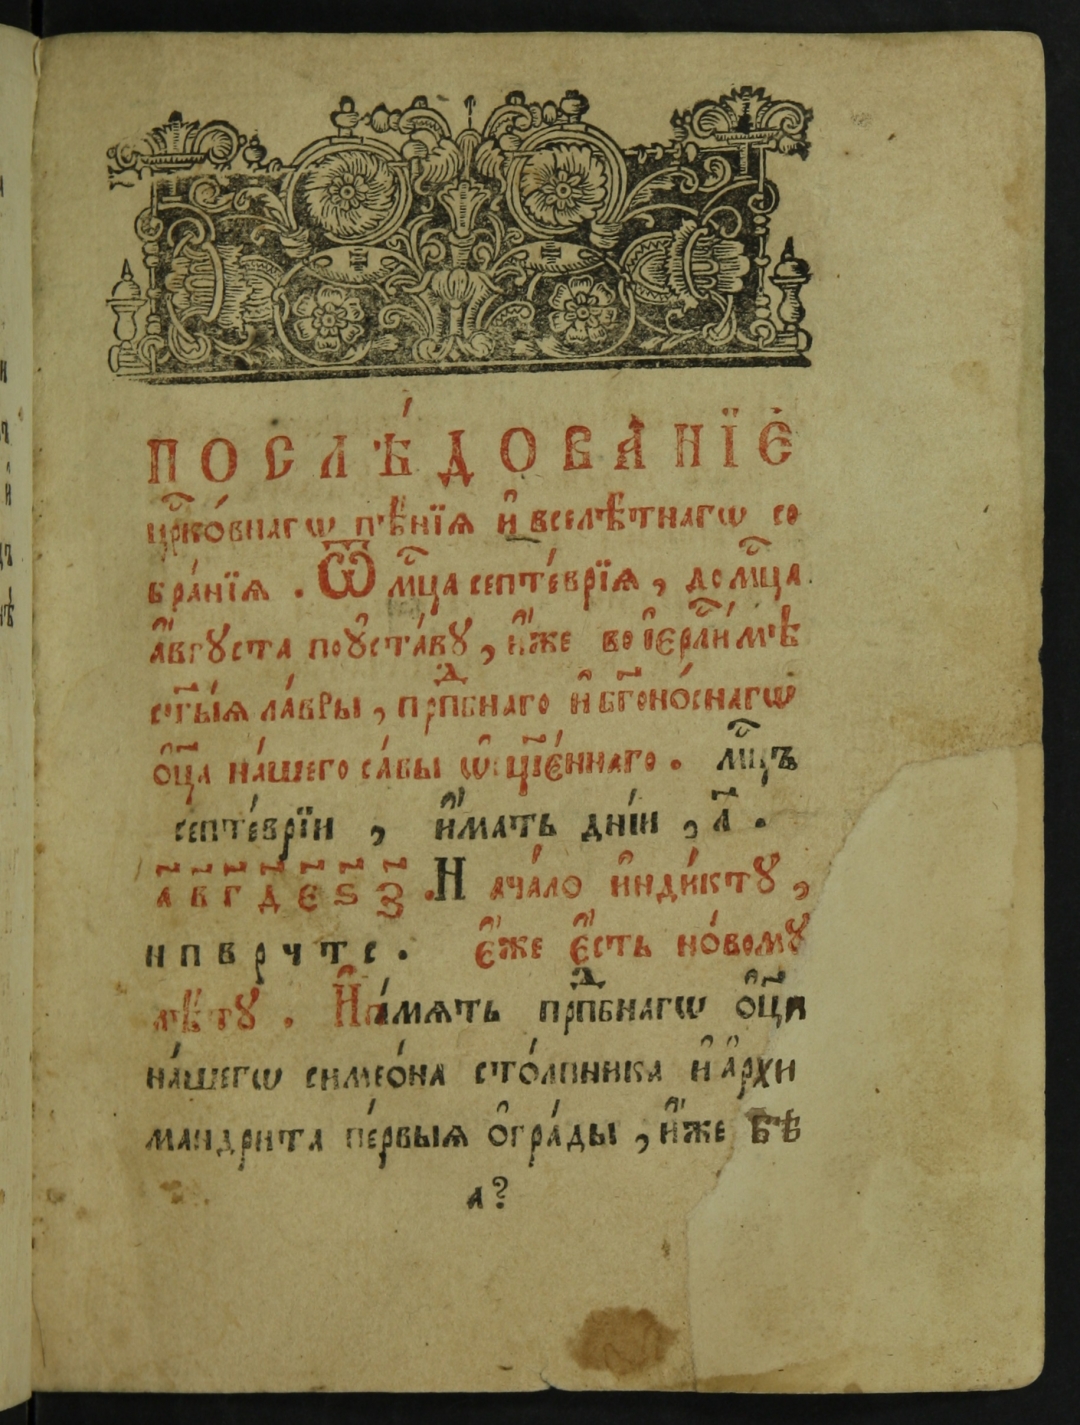 ПОСЛѢ́ДОВАНЇЕ
цр҃ко́внагѡ пѣ́нїѧ и҆ вселѣ́тнагѡ со
бра́нїѧ . Ѿ мц҃а септе́врїѧ , до мц҃а
а҆́вгꙋста по ᲂу҆ста́вꙋ , и҆́же во і҆ерⷭ҇ли́мѣ
ст҃ы́ѧ ла́вры , прⷣпбнаго и҆ бг҃оно́снагѡ
о҆ц҃а на́шего са́вы ѡ҆сщ҃е́ннаго . мц҃ъ
септе́врїи , и҆́мать дні́й , л҃ .
а҃ в҃ г҃ д҃ є҃ ѕ҃ з҃ . Нача́ло и҆нді́ктꙋ ,
н п в р ч т с . є҆́же є҆́сть но́вомꙋ
лѣ́тꙋ . И҆ па́мѧть прⷣпбнагѡ о҆ц҃а
на́шегѡ симео́на сто́лпника и҆ а҆рхи
мандрита пе́рвыѧ о҆гра́ды , и҆́же бѣ
а҃